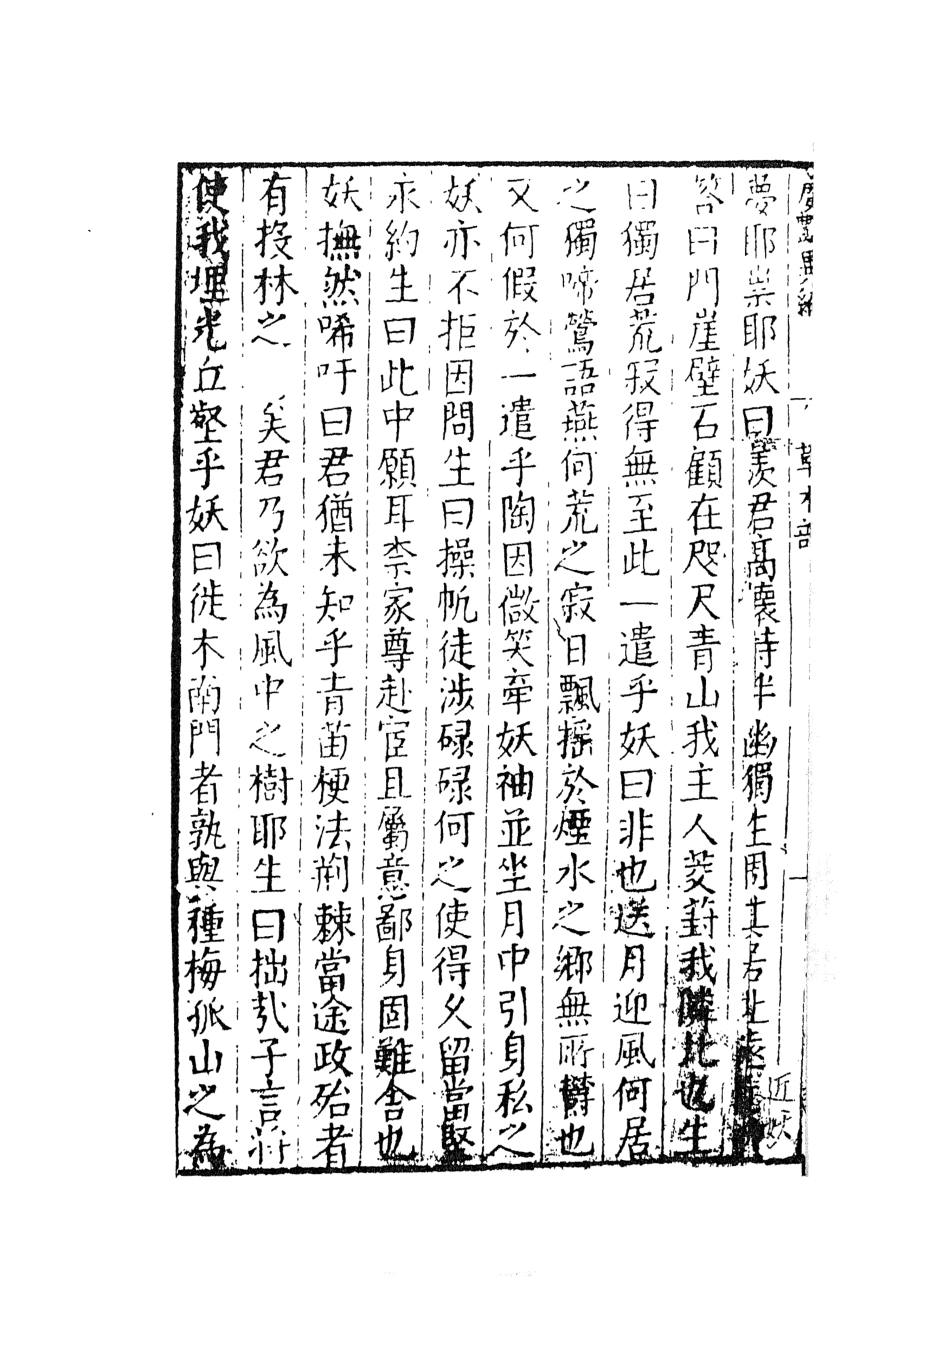 廣豔異編 草木部
夢耶祟耶妖曰羨君高懷特半幽獨生周其居址遠近妖
答曰門崖壁石顧在咫尺青山我主人菱葑我隣比也生
曰獨居荒寂得無至此一遣乎妖曰非也送月迎風何居
之獨啼鶯語燕何荒之寂日飄搖於煙水之鄉無所鬱也
又何假於一遣乎陶因微笑牽妖袖並坐月中引身私之
妖亦不拒因問生曰操帆徒涉碌碌何之使得久留當堅
永約生曰此中願耳柰家尊赴宦且屬意鄙身固難舍也
妖撫然唏吁曰君猶未知乎青苗梗法荊棘當途政殆者
有投林之 矣君乃欲為風中之樹耶生曰拙哉子言將
使我埋光丘壑乎妖曰徙木南門者孰與種梅孤山之為